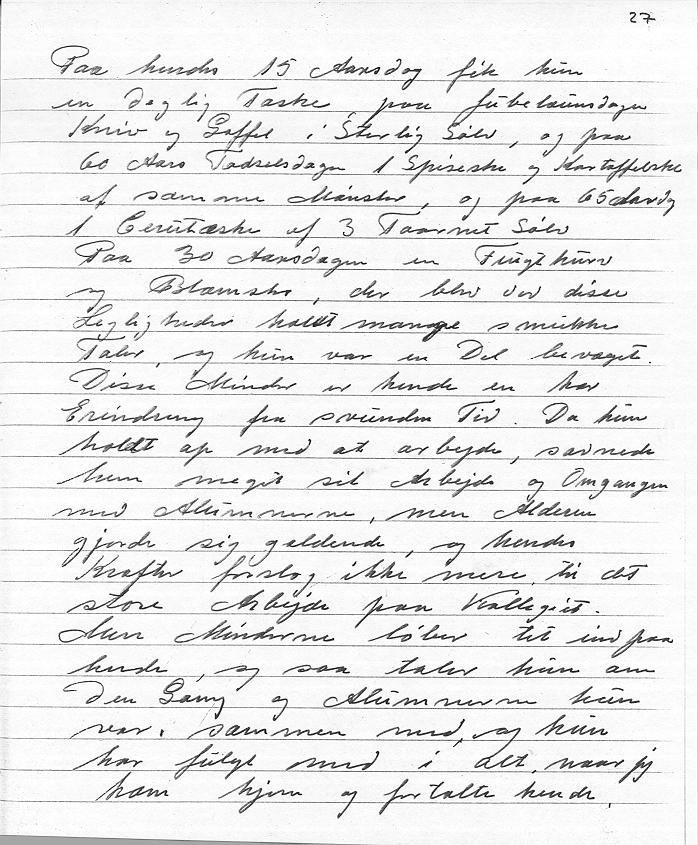 27
Paa hendes 15 Aarsdag fik hun
en daglig Taske, paa Jubelæumsdagen
Kniv og Gaffel i Sterlig Sølv, og paa
60 Aars Fødselsdagen 1 Spiseske og Kartoffelske
af samme Mønster, og paa 65 Aarsdg
1 Ceruttæske af 3 Taarnet Sølv
Paa 30 Aarsdagen en Frugtkurv
og Blomster, der blev ved disse
Leglighedr holdt mange smukke
Taler, og hun var en Del bevæget.
Disse Minder er hende en kær
Erindreng fra svunden Tid. Da hun
holdt op med at arbejde, savnede
hun meget sit Arbejde og Omgangen
med Alumnerne, men Alderen
gjorde sig gældende, og hendes
Kræfter forslog ikke mere til det
store Arbejde paa Kollegiet.
Men Minderne løber tit ind paa
hende, og saa taler hun om
den Gang og Alumnerne hun
var sammen med, og hun
har fulgt med i alt, naar jeg
kom hjem og fortalte hende.